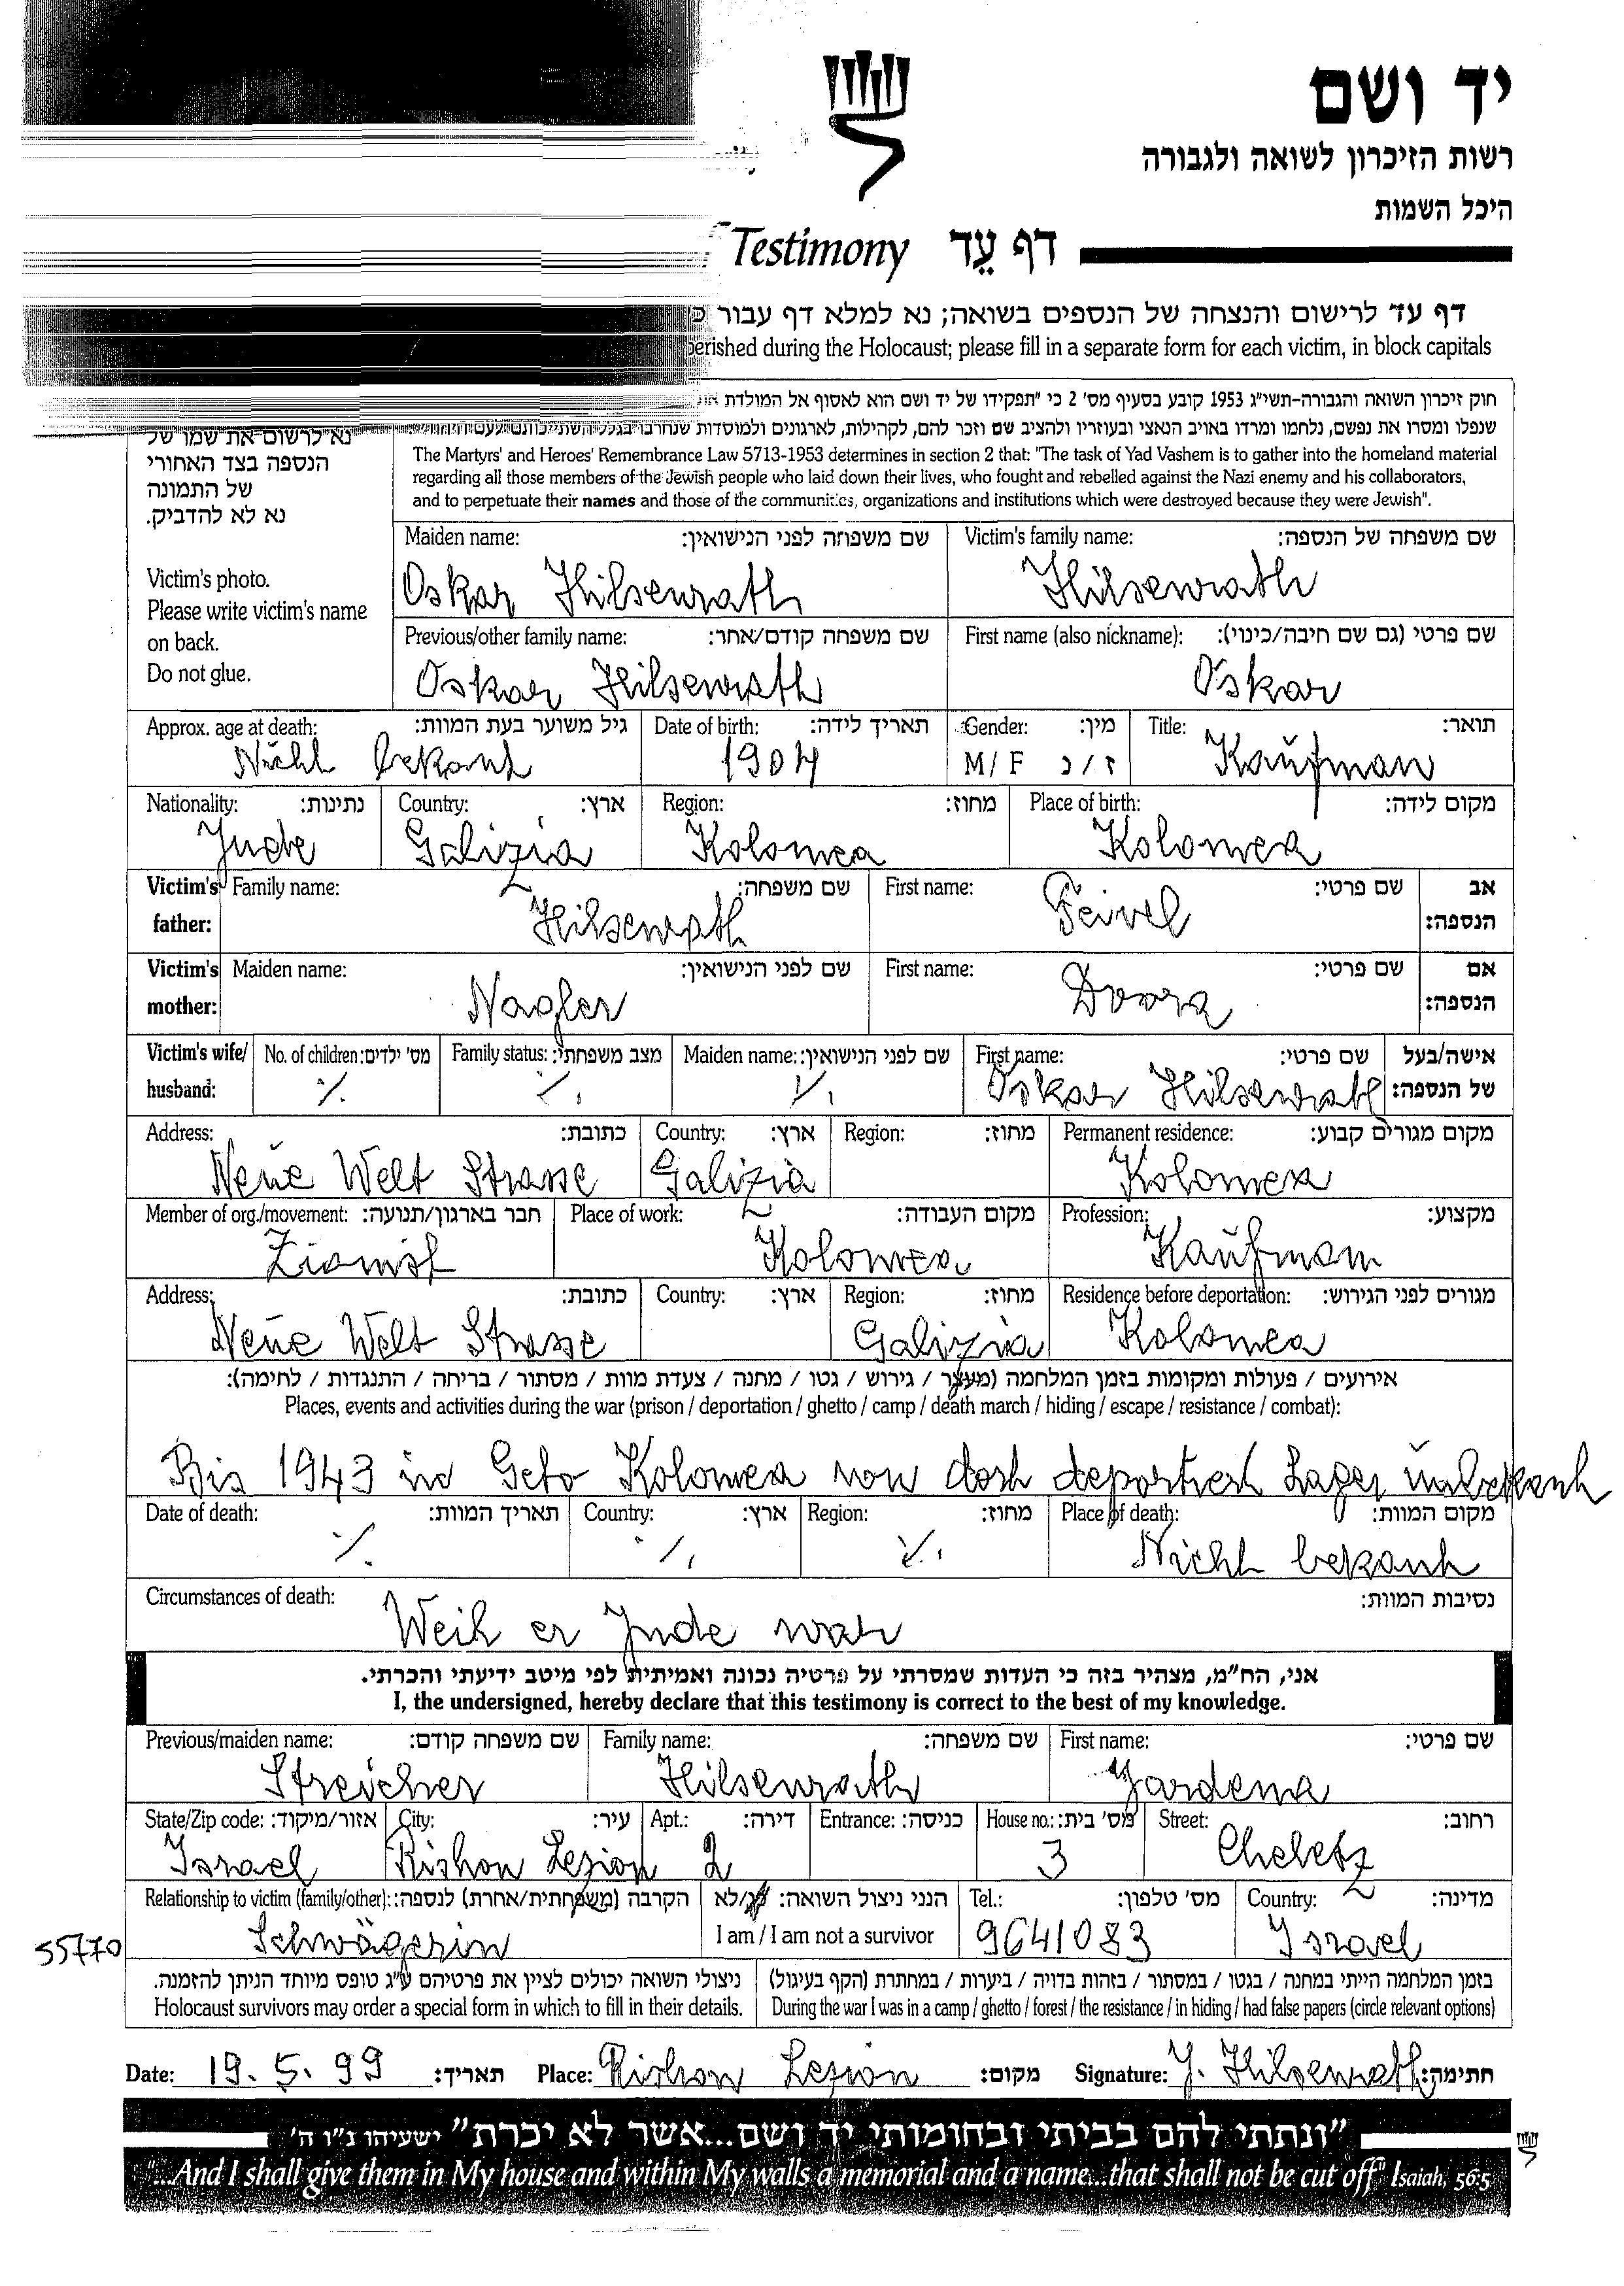 יד ושם
רשות הזיכרון לשואה ולגבורה
היכל השמות
Testimony דף עֵד
דף עד לרישום והנצחה של הנספים בשואה; נא למלא דף עבור
perished during the Holocaust; please fill in a separate form for each victim, in block capitals
חוק זיכרון השואה והגבורה-תשי"ג 1953 קובע בסעיף מס' 2 כי "תפקידו של יד ושם הוא לאסוף אל המולדת את
שנפלו ומסרו את נפשם, נלחמו ומרדו באויב הנאצי ובעוזריו ולהציב שם וזכר להם, לקהילות, לארגונים ולמוסדות שנחרבו בגלל השתייכותם לעם
The Martyrs' and Heroes' Remembrance Law 5713-1953 determines in section 2 that: "The task of Yad Vashem is to gather into the homeland material
regarding all those members of the Jewish people who laid down their lives, who fought and rebelled against the Nazi enemy and his collaborators,
and to perpetuate their names and those of the communities, organizations and institutions which were destroyed because they were Jewish".
נא לרשום את שמו של
הנספה בצד האחורי
של התמונה
נא לא להדביק.
Victim's photo.
Please write victim's name
on back.
Do not glue.
Maiden name: שם משפחה לפני הנישואין: Victim's family name: שם משפחה של הנספה:
Oskar Hilsenrath Hilsenrath
Previous/other family name: שם משפחה קודם/אחר: First name (also nickname): שם פרטי (גם שם חיבה/כינוי):
Oskar Hilsenrath Oskar
Approx. age at death: גיל משוער בעת המוות: Date of birth: תאריך לידה: Gender: מין: Title: תואר:
Nicht bekant 1904 M / F ז / נ Kaufman
Nationality: נתינות: Country: ארץ: Region: מחוז: Place of birth: מקום לידה:
Jude Galizia Kolomea Kolomea
Victim's father: Family name: שם משפחה: First name: שם פרטי: אב הנספה:
Hilsenrath Feivel
Victim's mother: Maiden name: שם לפני הנישואין: First name: שם פרטי: אם הנספה:
Nagler Dwora
Victim's wife/ husband: No. of children: מס' ילדים: Family status: מצב משפחתי: Maiden name: שם לפני הנישואין: First name: שם פרטי: אישה/בעל של הנספה:
٪ ٪ ٪ Oskar Hilsenrath
Address: כתובת: Country: ארץ: Region: מחוז: Permanent residence: מקום מגורים קבוע:
Neue Welt Strasse Galizia Kolomea
Member of org./movement: חבר בארגון/תנועה: Place of work: מקום העבודה: Profession: מקצוע:
Zionist Kolomea Kaufman
Address: כתובת: Country: ארץ: Region: מחוז: Residence before deportation: מגורים לפני הגירוש:
Neue Welt Strasse Galizia Kolomea
אירועים / פעולות ומקומות בזמן המלחמה (מעצר / גירוש / גטו / מחנה / צעדת מוות / מסתור / בריחה / התנגדות / לחימה):
Places, events and activities during the war (prison / deportation / ghetto / camp / death march / hiding / escape / resistance / combat):
Bis 1943 in Geto Kolomea von dort deportiert Lager unbekant
Date of death: תאריך המוות: Country: ארץ: Region: מחוז: Place of death: מקום המוות:
٪ ٪ ٪ Nicht bekant
Circumstances of death: נסיבות המוות:
Weil er Jude war
אני, הח"מ, מצהיר בזה כי העדות שמסרתי על פרטיה נכונה ואמיתית לפי מיטב ידיעתי והכרתי.
I, the undersigned, hereby declare that this testimony is correct to the best of my knowledge.
Previous/maiden name: שם משפחה קודם: Family name: שם משפחה: First name: שם פרטי:
Streicher Hilsenrath Yardena
State/Zip code: אזור/מיקוד: City: עיר: Apt.: דירה: Entrance: כניסה: House no.: מס' בית: Street: רחוב:
Israel Rishon Lezion 2 3 Cheletz
Relationship to victim (family/other): הקרבה (משפחתית/אחרת) לנספה: הנני ניצול השואה: כן/לא Tel.: מס' טלפון: Country: מדינה:
Schwägerin I am / I am not a survivor 9641083 Israel
55770
ניצולי השואה יכולים לציין את פרטיהם ע"ג טופס מיוחד הניתן להזמנה. בזמן המלחמה הייתי במחנה / בגטו / במסתור / בזהות בדויה / ביערות / במחתרת (הקף בעיגול)
Holocaust survivors may order a special form in which to fill in their details. During the war I was in a camp / ghetto / forest / the resistance / in hiding / had false papers (circle relevant options)
Date: 19.5.99 תאריך: Place: Rishon Lezion מקום: Signature: Y. Hilsenrath חתימה:
"ונתתי להם בביתי ובחומותי יד ושם...אשר לא יכרת" ישעיהו נ"ו ה'
"...And I shall give them in My house and within My walls a memorial and a name...that shall not be cut off" Isaiah, 56:5